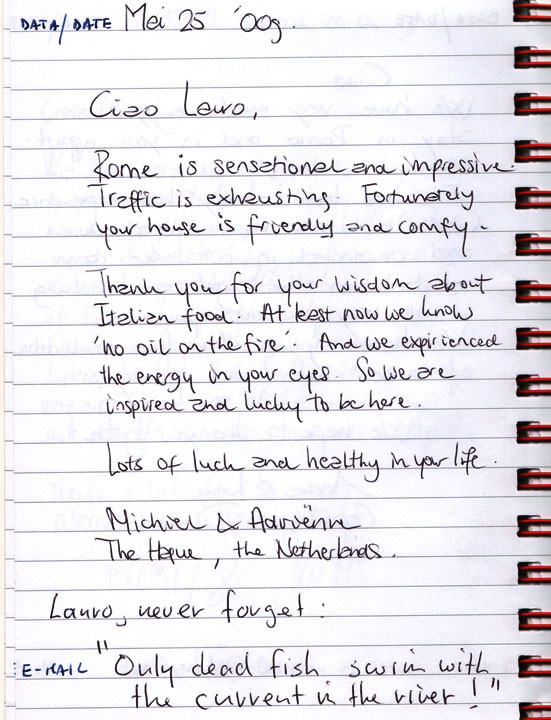 DATA/DATE Mei 25 '00g.
Ciao Lauro,
Rome is sensational and impressive.
Traffic is exhausting. Fortunately
your house is friendly and comfy.
Thank you for your wisdom about
Italian food. At least now we know
'no oil on the fire'. And we expirienced
the energy in your eyes. So we are
inspired and lucky to be here.
Lots of luck and healthy in your life.
Michiel & Adriënne
The Hague, the Netherlands.
Lauro, never forget:
E-MAIL "Only dead fish swim with
the current in the river!"